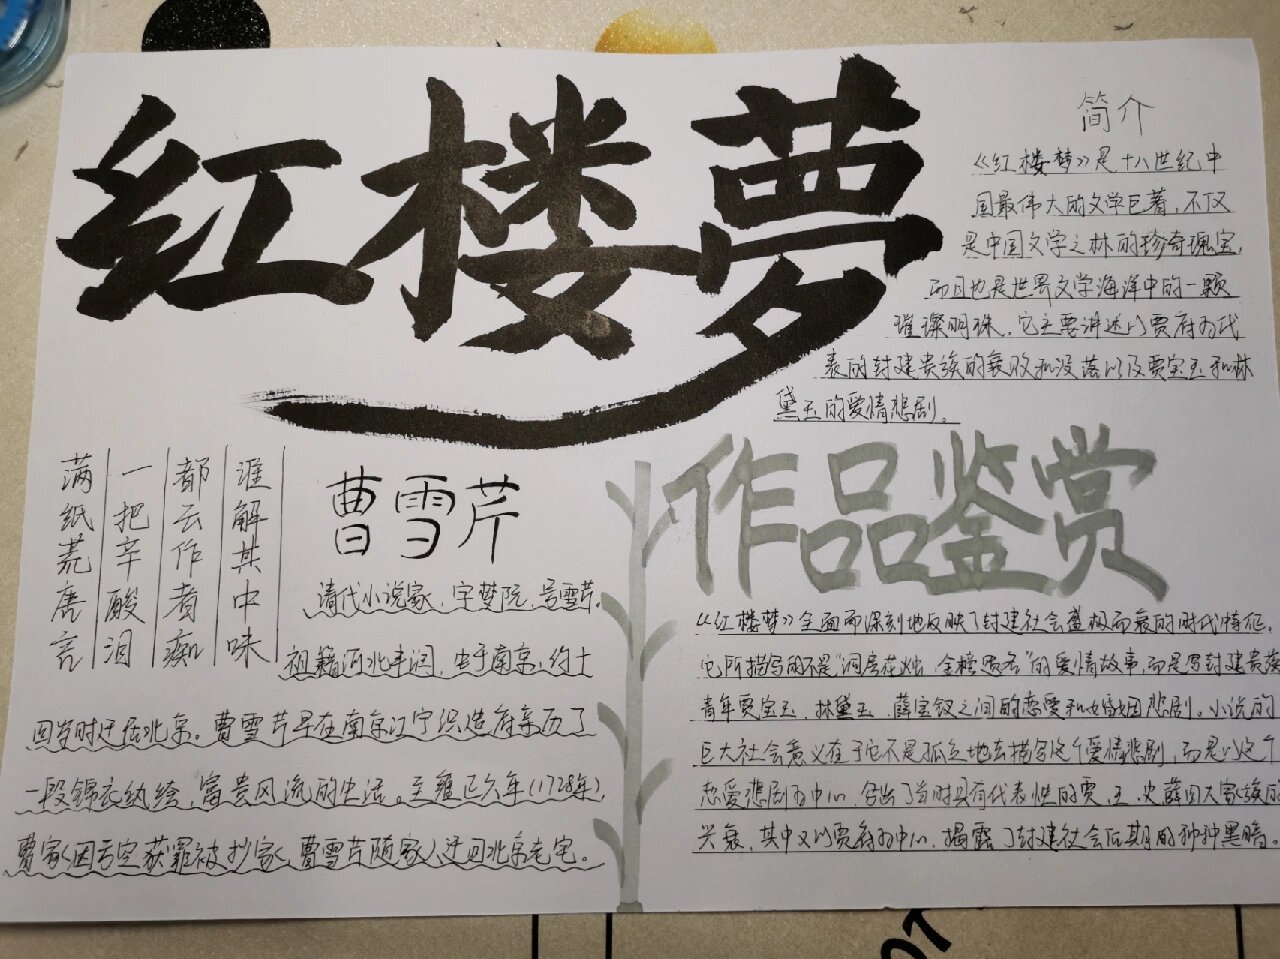 红楼梦
简介
《红楼梦》是十八世纪中
国最伟大的文学巨著，不仅
是中国文学之林的珍奇瑰宝，
而且也是世界文学海洋中的一颗
璀璨明珠。它主要讲述以贾府为代
表的封建贵族的衰败和没落以及贾宝玉和林
黛玉的爱情悲剧。
满纸荒唐言
一把辛酸泪
都云作者痴
谁解其中味
曹雪芹
清代小说家，字梦阮，号雪芹，
祖籍河北丰润，生于南京，约十
四岁时迁居北京。曹雪芹早在南京江宁织造府亲历了
一段锦衣纨绔，富贵风流的生活。至雍正六年（1728年），
曹家因亏空获罪被抄家，曹雪芹随家人迁回北京老宅。
作品鉴赏
《红楼梦》全面而深刻地反映了封建社会盛极而衰的时代特征。
它所描写的不是“洞房花烛，金榜题名”的爱情故事，而是写封建贵族
青年贾宝玉、林黛玉、薛宝钗之间的恋爱和婚姻悲剧。小说的
巨大社会意义在于它不是孤立地去描写这个爱情悲剧，而是以这个
恋爱悲剧为中心，写出了当时具有代表性的贾、王、史、薛四大家族的
兴衰，其中又以贾府为中心，揭露了封建社会后期的种种黑暗。